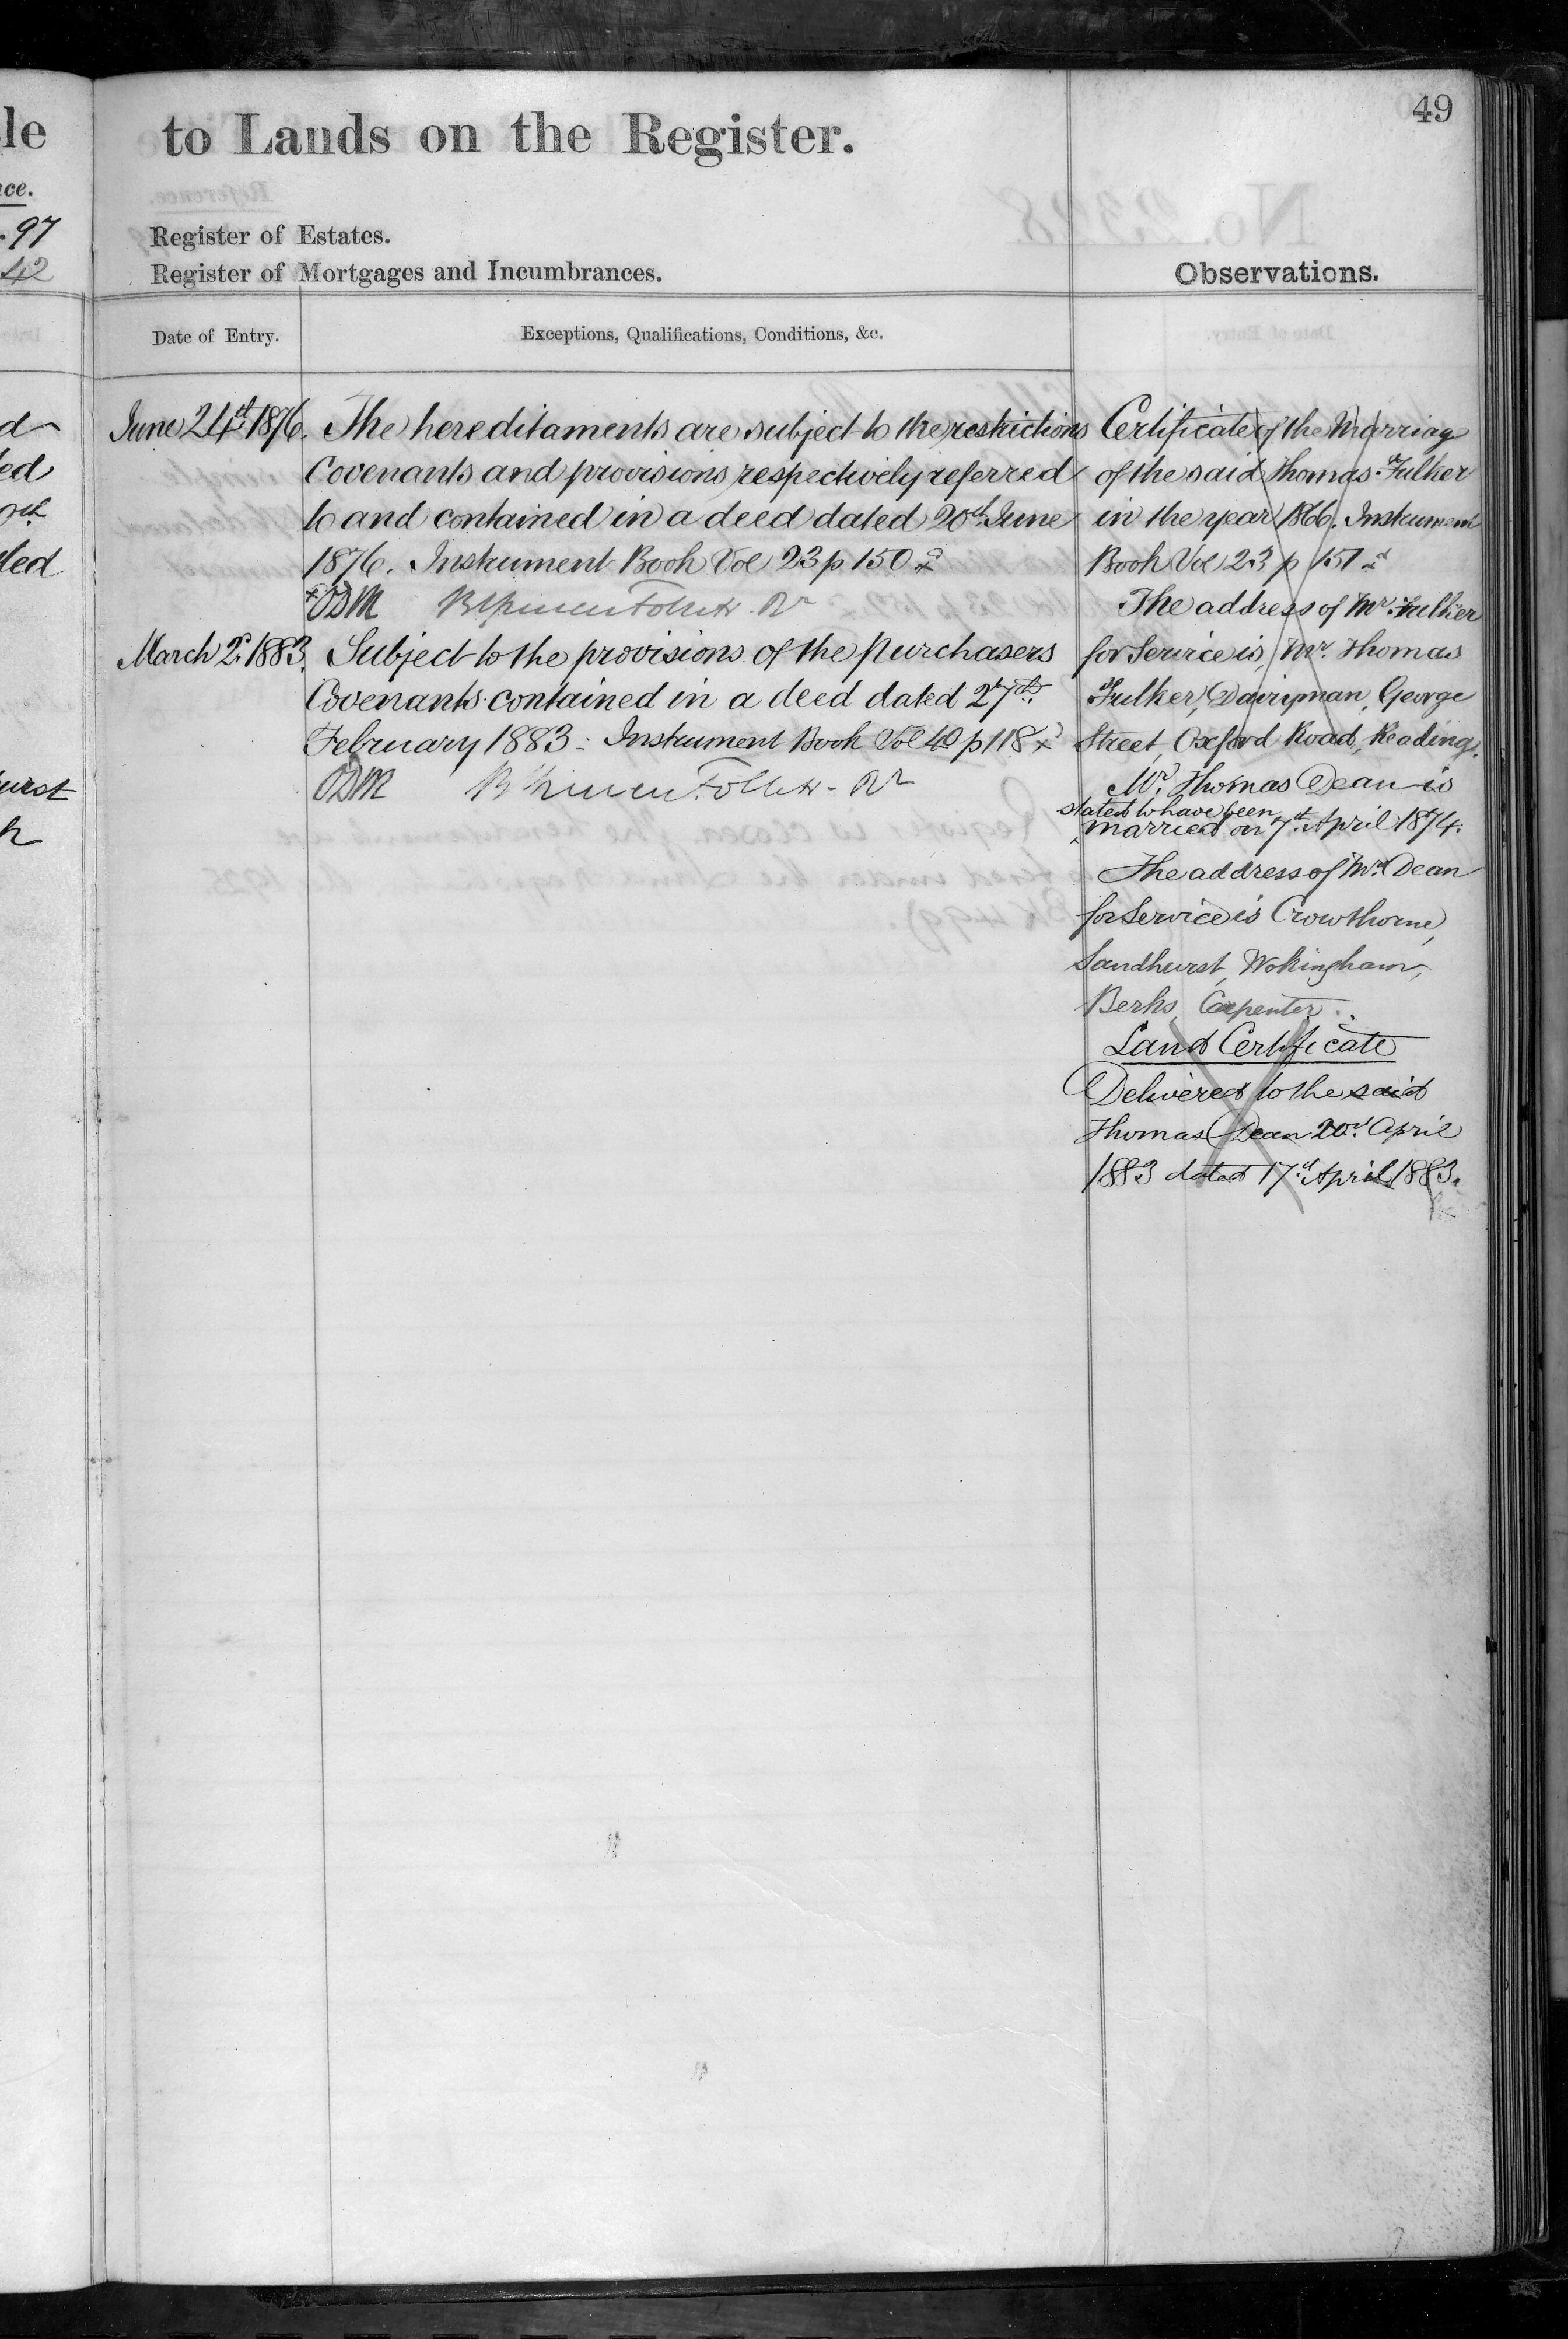 49
le
to Lands on the Register.
ce.
97
Register of Estates.
42
Register of Mortgages and Incumbrances.
Observations.
Date of Entry.
Exceptions, Qualifications, Conditions, &c.
June 24th 1876.
The hereditaments are subject to the restrictions
Covenants and provisions respectively referred
to and contained in a deed dated 20th June
1876. Instrument Book Vol 23 p 150
ODM
March 2d 1883.
Subject to the provisions of the purchasers
Covenants contained in a deed dated 27th
February 1883 - Instrument Book Vol 40 p 118
ODM
Certificate of the Marriage
of the said Thomas Fulker
in the year 1866. Instrument
Book Vol 23 p 151
The address of Mr. Fulker
for Service is, Mr. Thomas
Fulker, Dairyman, George
Street, Oxford Road, Reading.
Mr. Thomas Dean is
stated to have been
married on 7th April 1874.
The address of Mr. Dean
for Service is Crowthorne,
Sandhurst, Wokingham,
Berks, Carpenter.
Land Certificate
Delivered to the said
Thomas Dean 20th April
1883 dated 17th April 1883.